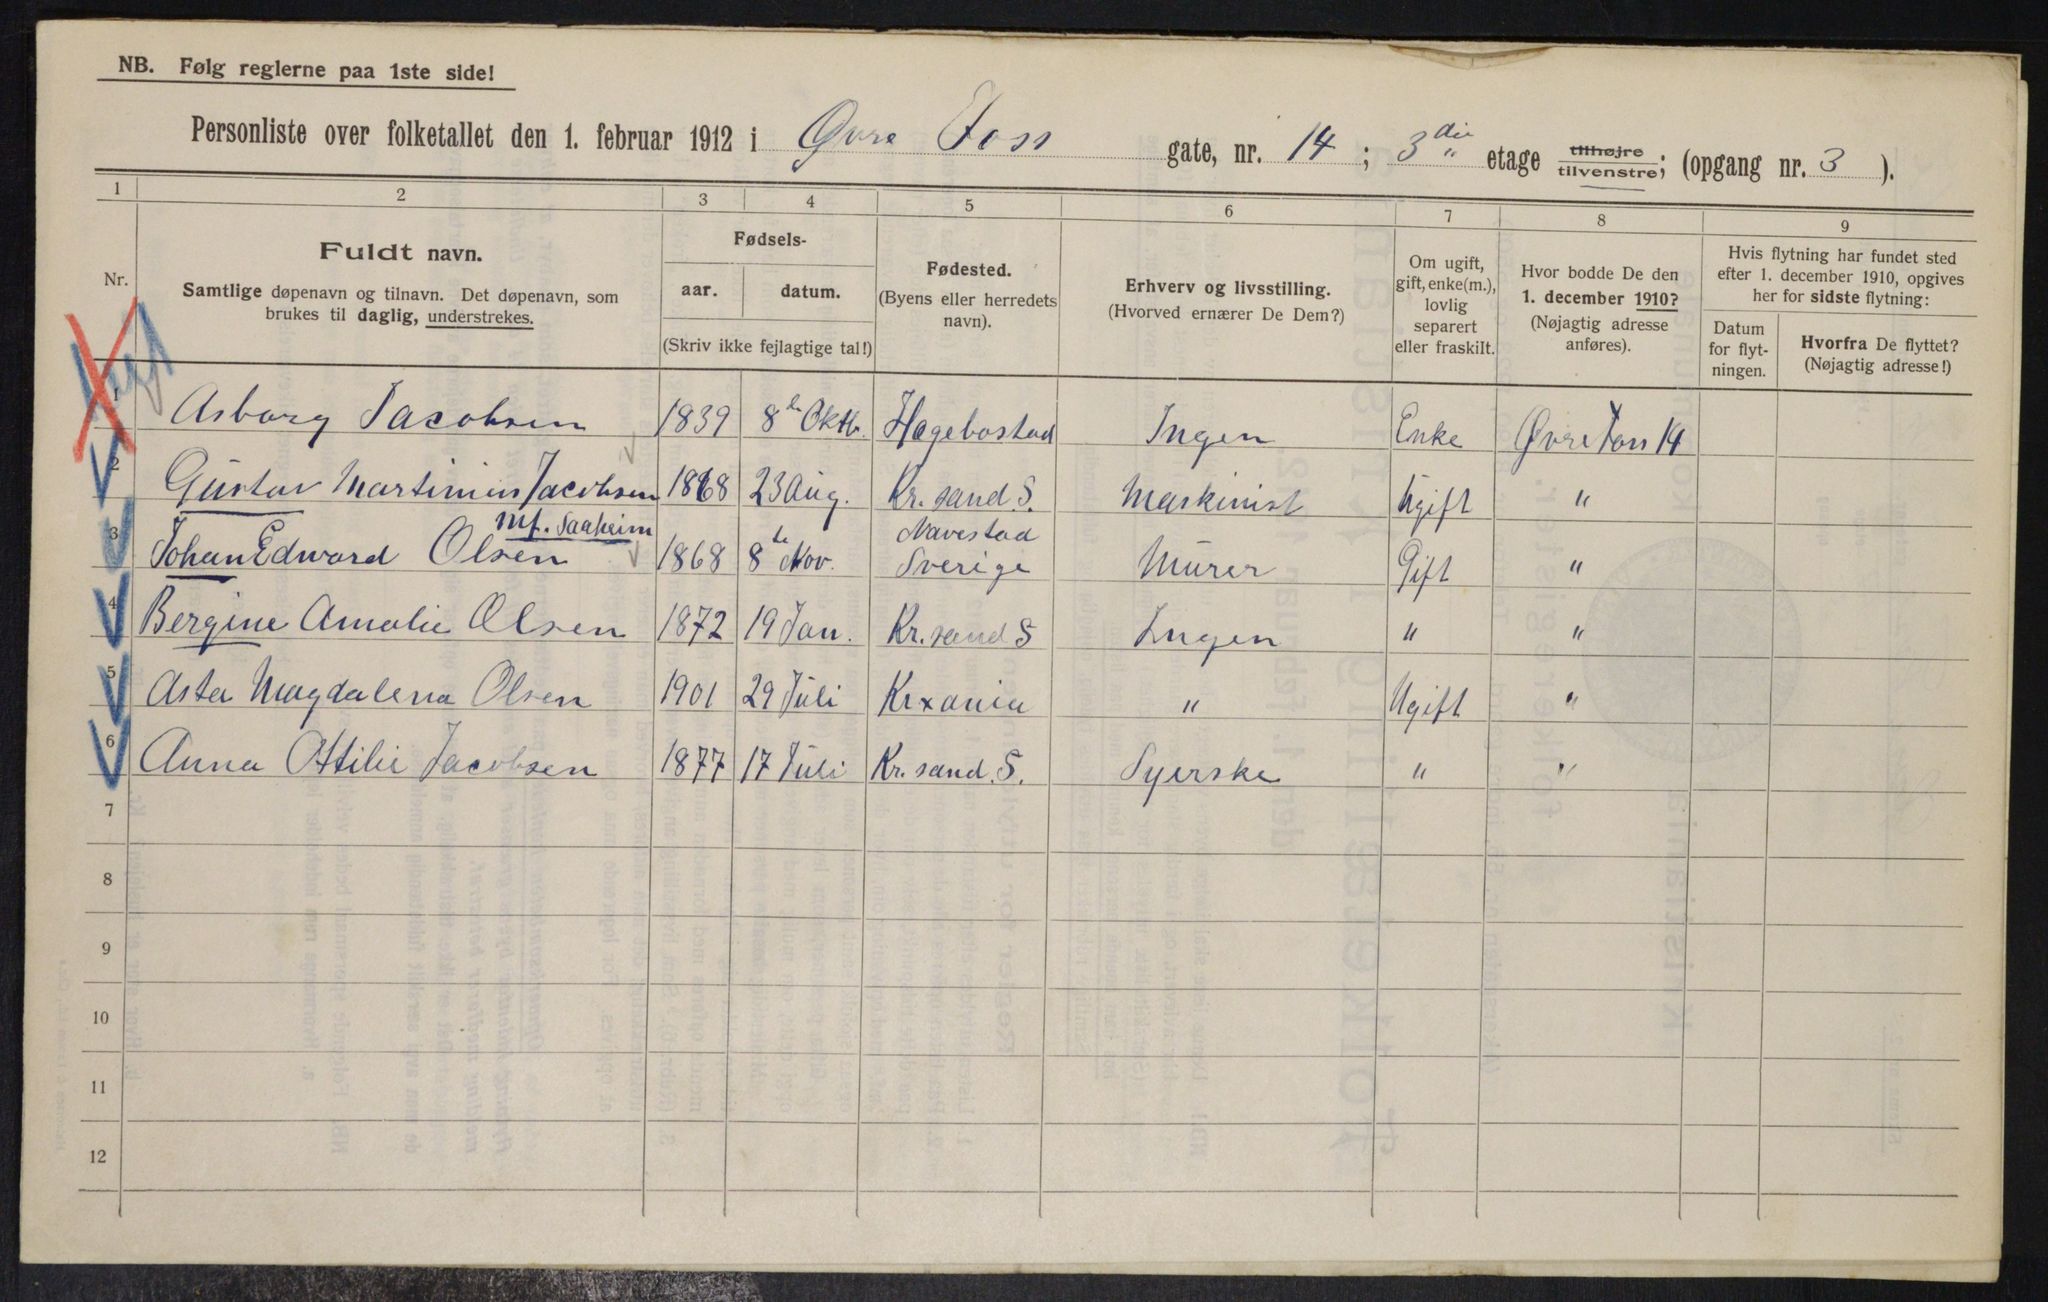 NB. Følg reglerne paa 1ste side!
Personliste over folketallet den 1. februar 1912 i Øvre Foss gate, nr. 14; 3die etage tilhøjre tilvenstre; (opgang nr. 3).
1 2 3 4 5 6 7 8 9
Nr.
Fuldt navn.
Samtlige døpenavn og tilnavn. Det døpenavn, som
brukes til daglig, understrekes.
Fødsels-
aar. datum.
(Skriv ikke fejlagtige tal!)
Fødested.
(Byens eller herredets
navn).
Erhverv og livsstilling.
(Hvorved ernærer De Dem?)
Om ugift,
gift, enke(m.),
lovlig
separert
eller fraskilt.
Hvor bodde De den
1. december 1910?
(Nøjagtig adresse
anføres).
Hvis flytning har fundet sted
efter 1. december 1910, opgives
her for sidste flytning:
Datum
for flyt-
ningen.
Hvorfra De flyttet?
(Nøjagtig adresse!)
1 Asborg Jacobsen 1839 8de Oktb. Hægebostad Ingen Enke Øvre Foss 14
2 Gustav Martinius Jacobsen 1868 23 Aug. Kr.sand S. Maskinist Ugift "
mf. Saaheim Navestad
3 Johan Edward Olsen 1868 8de Nov. Sverige Murer Gift "
4 Bergine Amalie Olsen 1872 19 Jan. Kr.sand S Ingen " "
5 Asta Magdalena Olsen 1901 29 Juli Krxania " Ugift "
6 Anna Ottilie Jacobsen 1877 17 Juli Kr.sand.S. Syerske " "
7
8
9
10
11
12